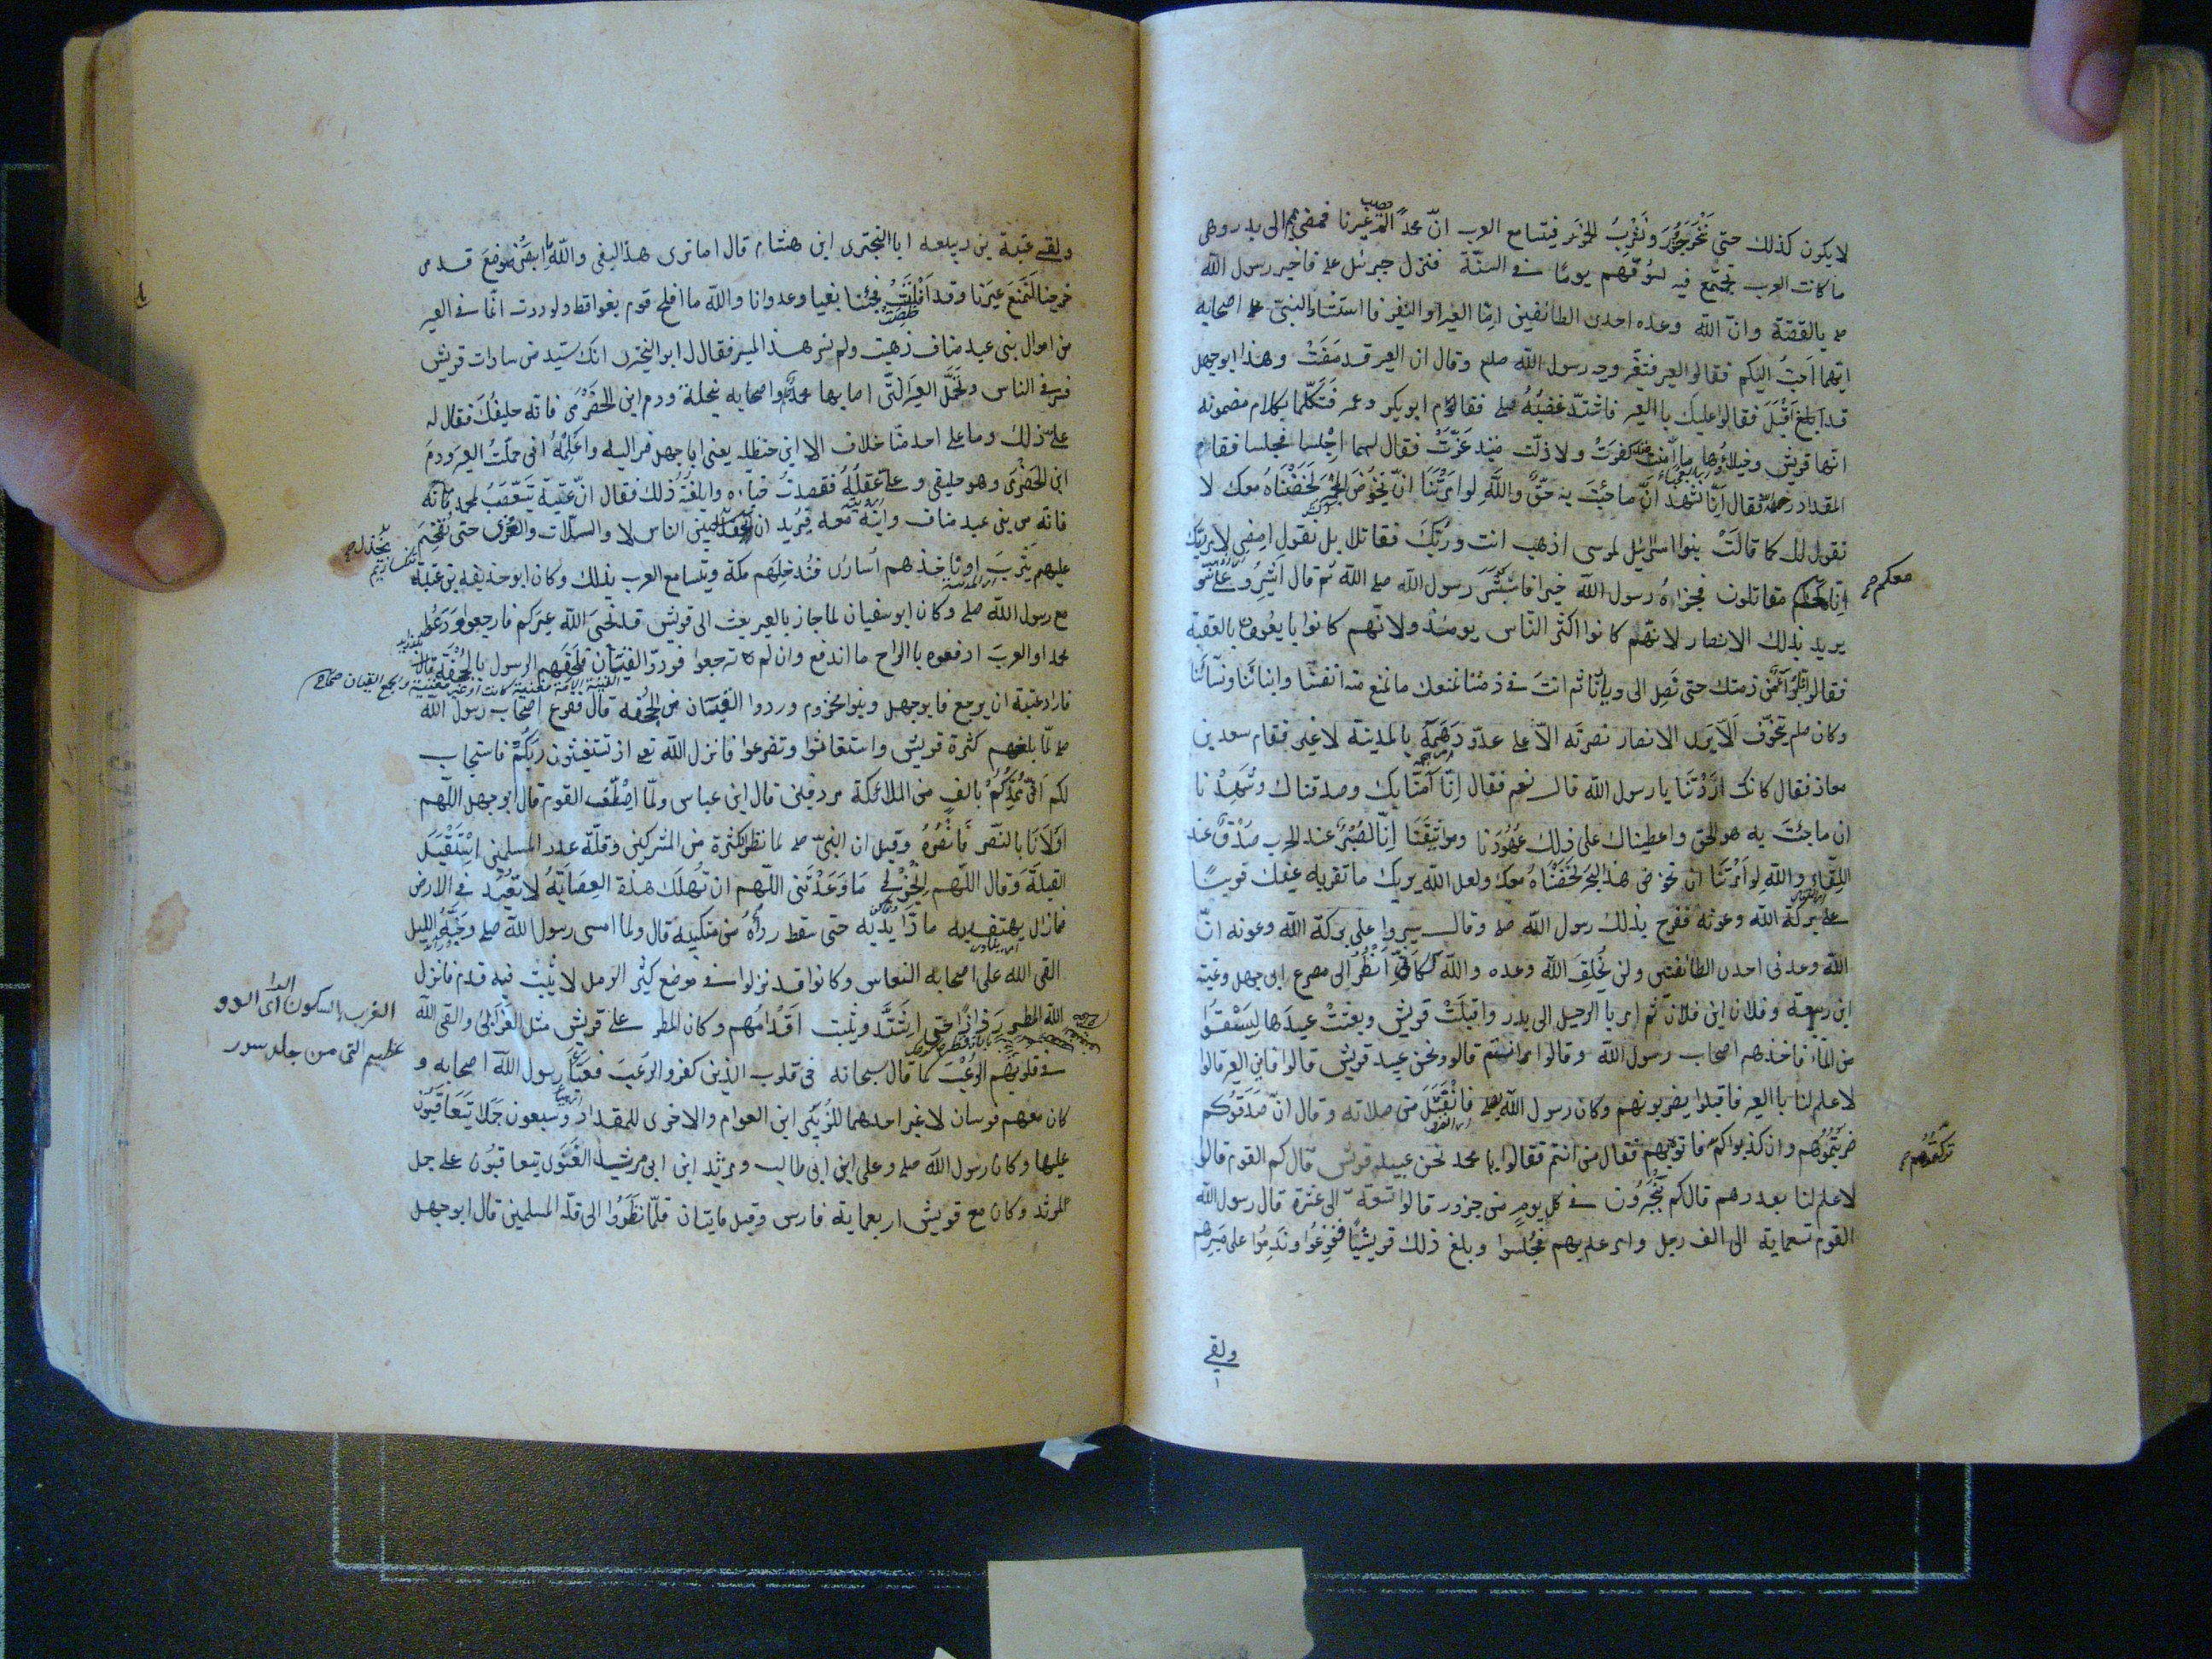 لا يكون كذلك حتى نَنْحَرَ جُزُر ونَشْرِبُ الخمر فتسامع العرب انّ محمدًا لم يصب عيرنا فمضى بهم الى بدر وهى
ما كانت العرب تجتمع فيه لسُوقهم يومًا فى السنة فنزل جبرئيل ع فاخبر رسول الله
صلع بالقصّة وانّ الله وعده احدى الطائفين امّا العير او النفير فاستشار النبىّ صلع اصحابه
ايّهما اَحَبُّ اليكم فقالوا العير فتغيّر وجه رسول الله صلع وقال ان العير قد مَضَتْ وهذا ابو جهل
قد اَقْبَلَ فقالوا عليك با العير فاشتدّ غضبُهُ صلع فقام ابو بكر وعمر فَتَكلّما بكلام مضمونه
انها قريش وخيلاؤها ما آمنت منذ كفرَتْ ولا ذلّت منذ عَزّتْ فقال لهما اِجْلِسا فجلسا فقام
المقداد فقال اَنّا نشهد انّ ما جئتَ به حقّ واللهِ لو امَرْتَنَا انْ نَخُوضَ لَخُضْنَاهُ معك لا
نقول لك كما قالَتْ بنوا اسرائيل لموسى اذهب انت وربّك فقاتلا بل نقول امضِ لامر ربّك
اِنّا معكم مقاتلون فجزاهُ رسول الله خيرا فاستبشَرَ رسول الله صلى الله ثم قال اَشِيرُوا عَلَىَّ
يريد بذلك الانصار لانّهم كانوا اكثر النّاس يومئذ ولانّهم كانوا بايعُوهُ بالعقبة
فقالوا من ذمتك حتى تَصِل الى ديارنا ثم انتَ فى ذمّتنا نمنعك ما نمنع منه انفسنا وابنائنا ونسائنا
وكان صلعم يتخوّف اَلّا يَرَى الانصار نصرتَه الّا على عدوّ دَهَمَهُ بالمدينة لا غير فقام سعد بن
معاذ فقال كانّك ارَدْتَنا يا رسول الله قال نعم فقال اِنّا آمَنّا بك وصدقناك وشَهِدْنا
ان ما جئتَ به هو الحق واعطيناك على ذلك عهُودَنا ومواثيقَنا اِنّا لَصُبُرٌ عند الحرب صُدْقٌ عند
اللِقاء والله لو اَمَرْتَنا ان نخوض هذا البحرَ لخُضْناهُ معك ولعل الله يريك ما تقرّ به عينك فسِرْ بنا
على بركة الله وعونه ففرح بذلك رسول الله صلع وقال سيروا على بركة الله وعونه انّ
الله وعدنى احدى الطائفتين ولن يُخلِفَ اللّه وعده والله لكانّى اَنْظُرُ الى مصرع ابى جهل وعتبه
ابن ربيعة وفلان ابن فلان ثم امر با الرحيل الى بدر واقبلَتْ قريش وبعثَتْ عبيدَها ليستقوا
من الماء فاخذهم اصحاب رسول الله وقالوا من انتم قالوا نحن عبيد قريش قالوا فاين العير قالوا
لا علم لنا با العير فاقبلوا يضربونهم وكان رسول الله يصلى فانفَتَلَ من صلاته وقال انْ صَدَقُوكم
ضربتُمُوهم وان كذبواكم فاتوبهم فقال من انتم فقالوا يا محمد نحن عبيد قريش قال كم القوم قالوا
لا علم لنا بعددهم قال كم يَنْحَرُون فى كل يوم من جزور قالوا تسعة الى عشرة قال رسول الله
القوم تسعماية الى الف رجل وامر عليهم فحُبِسوا وبلغ ذلك قريشًا ففزِعُوا ونَدِمُوا على مَسيرهم
معكم صح
تركتموهم صح
ولقى
ولقى عتبة بن ربيعه ابا البخترى ابن هشام قال اما ترى هذا البغى والله ما ابصُرُ موضعَ قدمى
خرجنا لنَمنَعَ عيرَنا وقد اَفْلَتَتْ فجئنا بغيا وعدوانا والله ما افلح قوم بغوا قط ولوددت انّ ما فى العير
من اموال بنى عبد مناف ذهبت ولم نسر هذا المسير فقال له ابو البخترى انك سيّد من سادات قريش
فسِرْ فى الناس وتحَمَّلِ العيرَ الّتى اصابها محمد واصحابه بنخلة ودم ابن الحَضْرَمى فانه حليفُكَ فقال له
علىَّ ذلك وما على احد منّا خلاف الا ابن حنظله يعنى ابا جهل فسر اليه واعْلِمْهُ انى حملْتُ العيرَ ودمَ
ابن الحَضْرَمى وهو حليفى وعلىّ عَقْلُهُ فقصدتُ خباءه وابلغتُه ذلك فقال انّ عتبة يَتَعَصّبُ لمحمد
فانّه من بنى عبد مناف وابنُهُ معه يُريد ان بين الناس لا واللّات والعُزّى حتى نقحِمَ
عليهم يَثْرِبَ او نأخذهم اُسارى فنُدخِلَهم مكة ويتسامع العرب بذلك وكان ابو حذيفه بن عتبة
مع رسول الله صلع وكان ابو سفيان لما جاز بالعير بعث الى قريش قد نَجّى الله عيركم فارجعوا ودَعُوا
محمدا والعربَ ادفعوه با الراح ما اندفع وان لم ترجعوا فردّوا القيان فلحقهم الرسول بالجُحْفة قال
فاراد عتبة ان يرجع فابو جهل وبنوا مخزوم وردوا القيان من الجُحْفه قال ففزع اصحاب رسول الله
صلع لمّا بلغهم كثرة قريش واستغاثوا وتضرعوا فانزل الله تع اذ تستغيثون ربّكُمْ فاستجاب
لكم اَنّى مُمِدُّكُمْ بالفٍ من الملائكة مردفين قال ابن عباس ولمّا اصْطَفّ القوم قال ابو جهل اللّهم
اَوْلانا بالنّصر فانْصُرْهُ وقيل ان النبىّ صلع لما نظر لكثرة من المشركين وقلّة عدد المسلمين اِسْتَقْبَل
القبلة وقال اللّهم اَنْجِزْ لى مَا وَعَدْتَنى اللّهم ان تُهْلَك هذه العِصَابَةُ لا تُعْبَد فى الارض
فمازال يهتف ربه مادّا يديه حتى سقط رداؤهُ من منكبيه قال ولما امسى رسول الله صلع وجَنّهُ الليل
القى الله على اصحابه النعاس وكانوا قد نزلوا فى موضع كثير الرمل لا تثبت فيه قدم فانزل
الله المطر رَذاذًا حتى اِشتَدَّ وثبت اقْدَامُهم وكان المطر على قريش مثل العَزَالِى والقى الله
فى قلوبهم الرُعْبَ كما قال سبحانه فى قلوب الذين كفروا الرعب فعَبَّأ رسول الله اصحابه و
كان معهم فرسان لا غير احدهما للزُبَيْر ابن العوام والاخرى للمقداد وسبعون جملا يَتَعاقَبُون
عليها وكان رسول الله صلع وعلى ابن ابى طالب ومرثد ابن ابى مرثد الغَنَوى يتعاقبون على جمل
لمرثد وكان مع قريش اربعماية فارس وقيل مايتان فلمّا نظَرُوا الى قلّة المسلمين قال ابو جهل